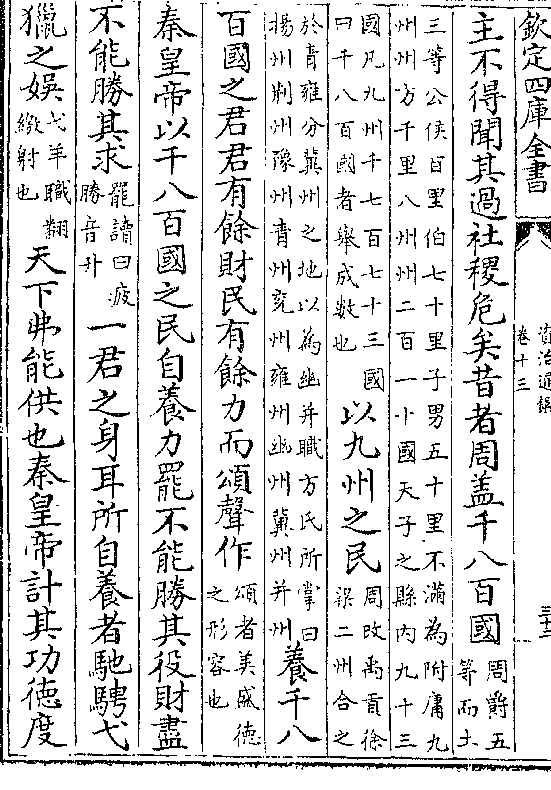 欽定四庫全書
資治通鑑
卷十三
三十三
主不得聞其過社稷危矣昔者周盖千八百國周爵五
等而土
三等公侯百里伯七十里子男五十里不滿為附庸九
州州方千里八州州二百一十國天子之縣内九十三
國凡九州千七百七十三國
曰千八百國者舉成數也以九州之民周改禹貢徐
梁二州合之
於青雍分冀州之地以為幽并職方氏所掌曰
揚州荆州豫州青州兖州雍州幽州冀州并州養千八
百國之君君有餘財民有餘力而頌聲作頌者美盛德
之形容也
秦皇帝以千八百國之民自養力罷不能勝其役財盡
不能勝其求罷讀曰疲
勝音升一君之身耳所自養者馳騁弋
獵之娛弋羊職翻
繳射也天下弗能供也秦皇帝計其功德度